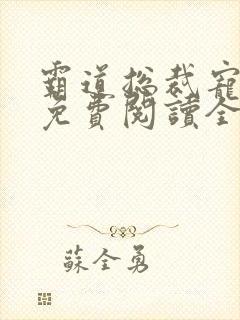 霸道總裁寵
免費閱讀全
蘇全勇